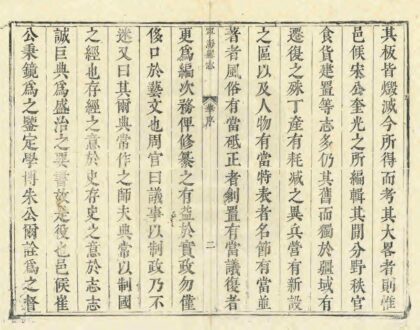 其板皆燬滅今所得而考其大畧者則惟
邑侯宋公奎光之所編輯其間分野秩官
食貨建置等志多仍其舊而獨於疆域有
遷復之殊丁產有耗减之異兵營有新設
之區以及人物有當特表者名節有當並
著者風俗有當砥正者創置有當議復者
寧海縣志
卷序
二
更為編次務俾修纂之有益於實政勿僅
侈口於藝文也周官曰議事以制政乃不
迷又曰其爾典常作之師夫典常以制國
之經也存經之意於史存史之意於志志
誠巨典為盛治之要書故是役也邑侯崔
公秉鏡為之鑒定學博朱公爾詮為之督